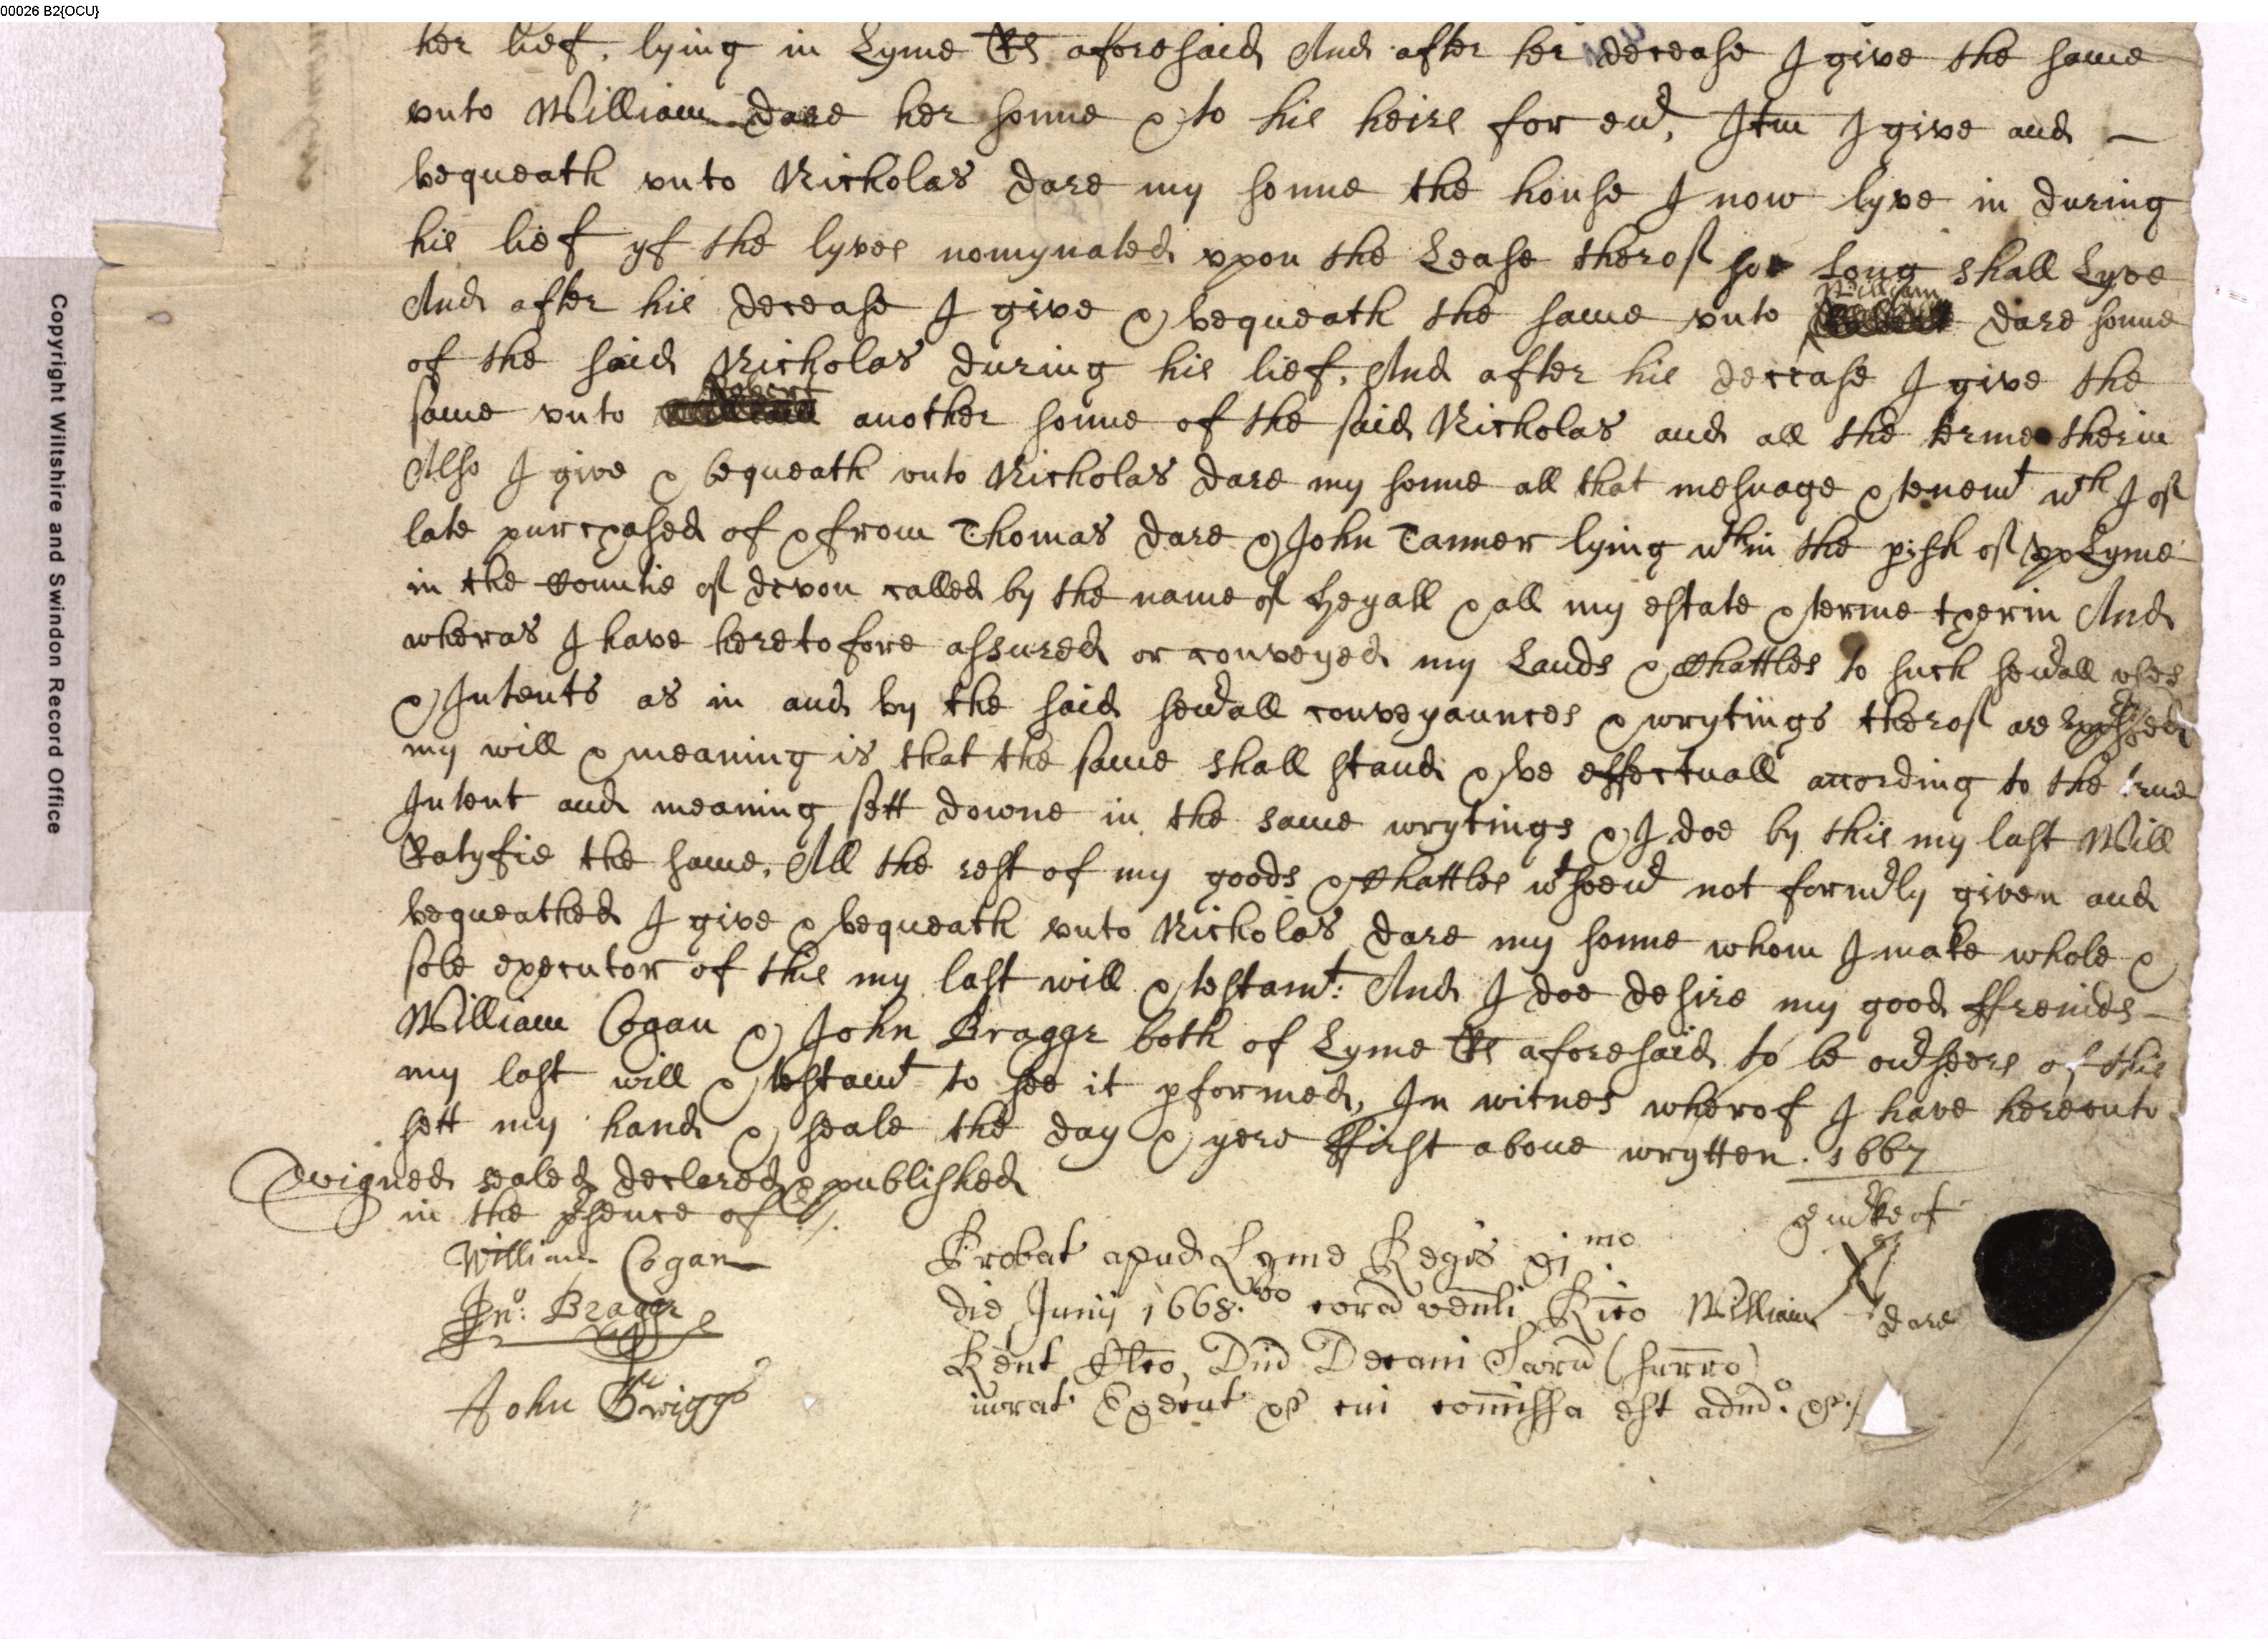 00026 B2{OCU}
her lief, lying in Lyme Rs aforesaid And after her decease I give the same
vnto William Dare her sonne & to his heires for eu9, Itm I give and —
bequeath vnto Nicholas Dare my sonne the house I now lyve in during
his lief yf the lyves nomynated vpon the Lease therof soe long shall Lyve
And after his decease I give & bequeath the same vnto William Dare sonne
of the said Nicholas during his lief, And after his decease I give the
same vnto Robert another sonne of the said Nicholas and all the terme therin
Also I give & bequeath vnto Nicholas Dare my sonne all that mesuage & tenemt wch I of
late purchased of & from Thomas Dare & John Tanner lying wthin the pish of vpLyme
in the Countie of Devon called by the name of Hegall & all my estate & terme therin And
wheras I have heretofore assured or conveyed my Lands & Chattles to such seu9all vses
& Intents as in and by the said seu9all conveyaunces & wrytings therof are
my will & meaning is that the same shall stand & be effectuall according to the true
Intent and meaning sett downe in the same wrytings & I doe by this my last Will
Ratyfie the same, All the rest of my goods & Chattles wtsoeu9 not form9ly given and
bequeathed I give & bequeath vnto Nicholas Dare my sonne whom I make whole &
sole executor of this my last will & testamt: And I doe desire my good ffreinds —
William Cogan & John Bragge both of Lyme Rs aforesaid to be ou9seers of this
my last will & testamt to see it pformed, In witnes wherof I have herevnto
sett my hand & seale the day & yere ffirst above wrytten. 1667
Signed sealed declared & published
in the psence of
William Cogan
Jno: Bragge
John Briggs
Probat apud Lyme Regis xjmo
die Junij 1668.vo cora venli Rico
Kent Clico, Dnd Decani Saru (surro)
iurat Execut &c cui comissa est admo. &c./
William Dare
Copyright Wiltshire and Swindon Record Office